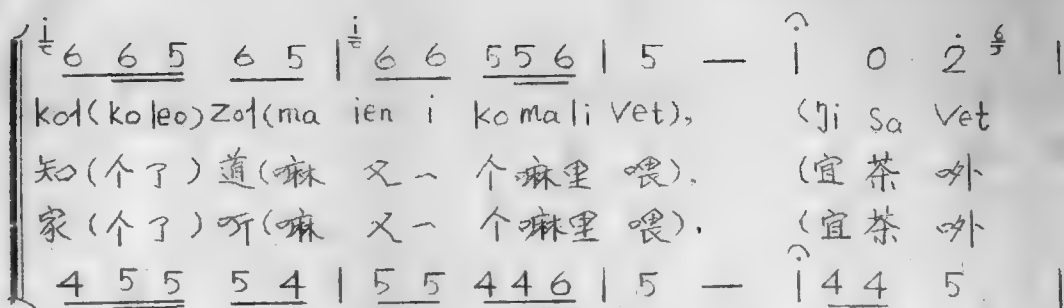 i 6 6 5 6 5 | i 6 6 5 5 6 | 5 — i 0 2 6 |
kol(ko leo)Zol(ma ien i ko ma li Vet), (ŋi Sa Vet
知(个了)道(嘛 又一 个嘛里 喂). (宜 茶 哟
家(个了)听(嘛 又一 个嘛里 喂). (宜 茶 哟
4 5 5 5 4 | 5 5 4 4 6 | 5 — i 4 4 5